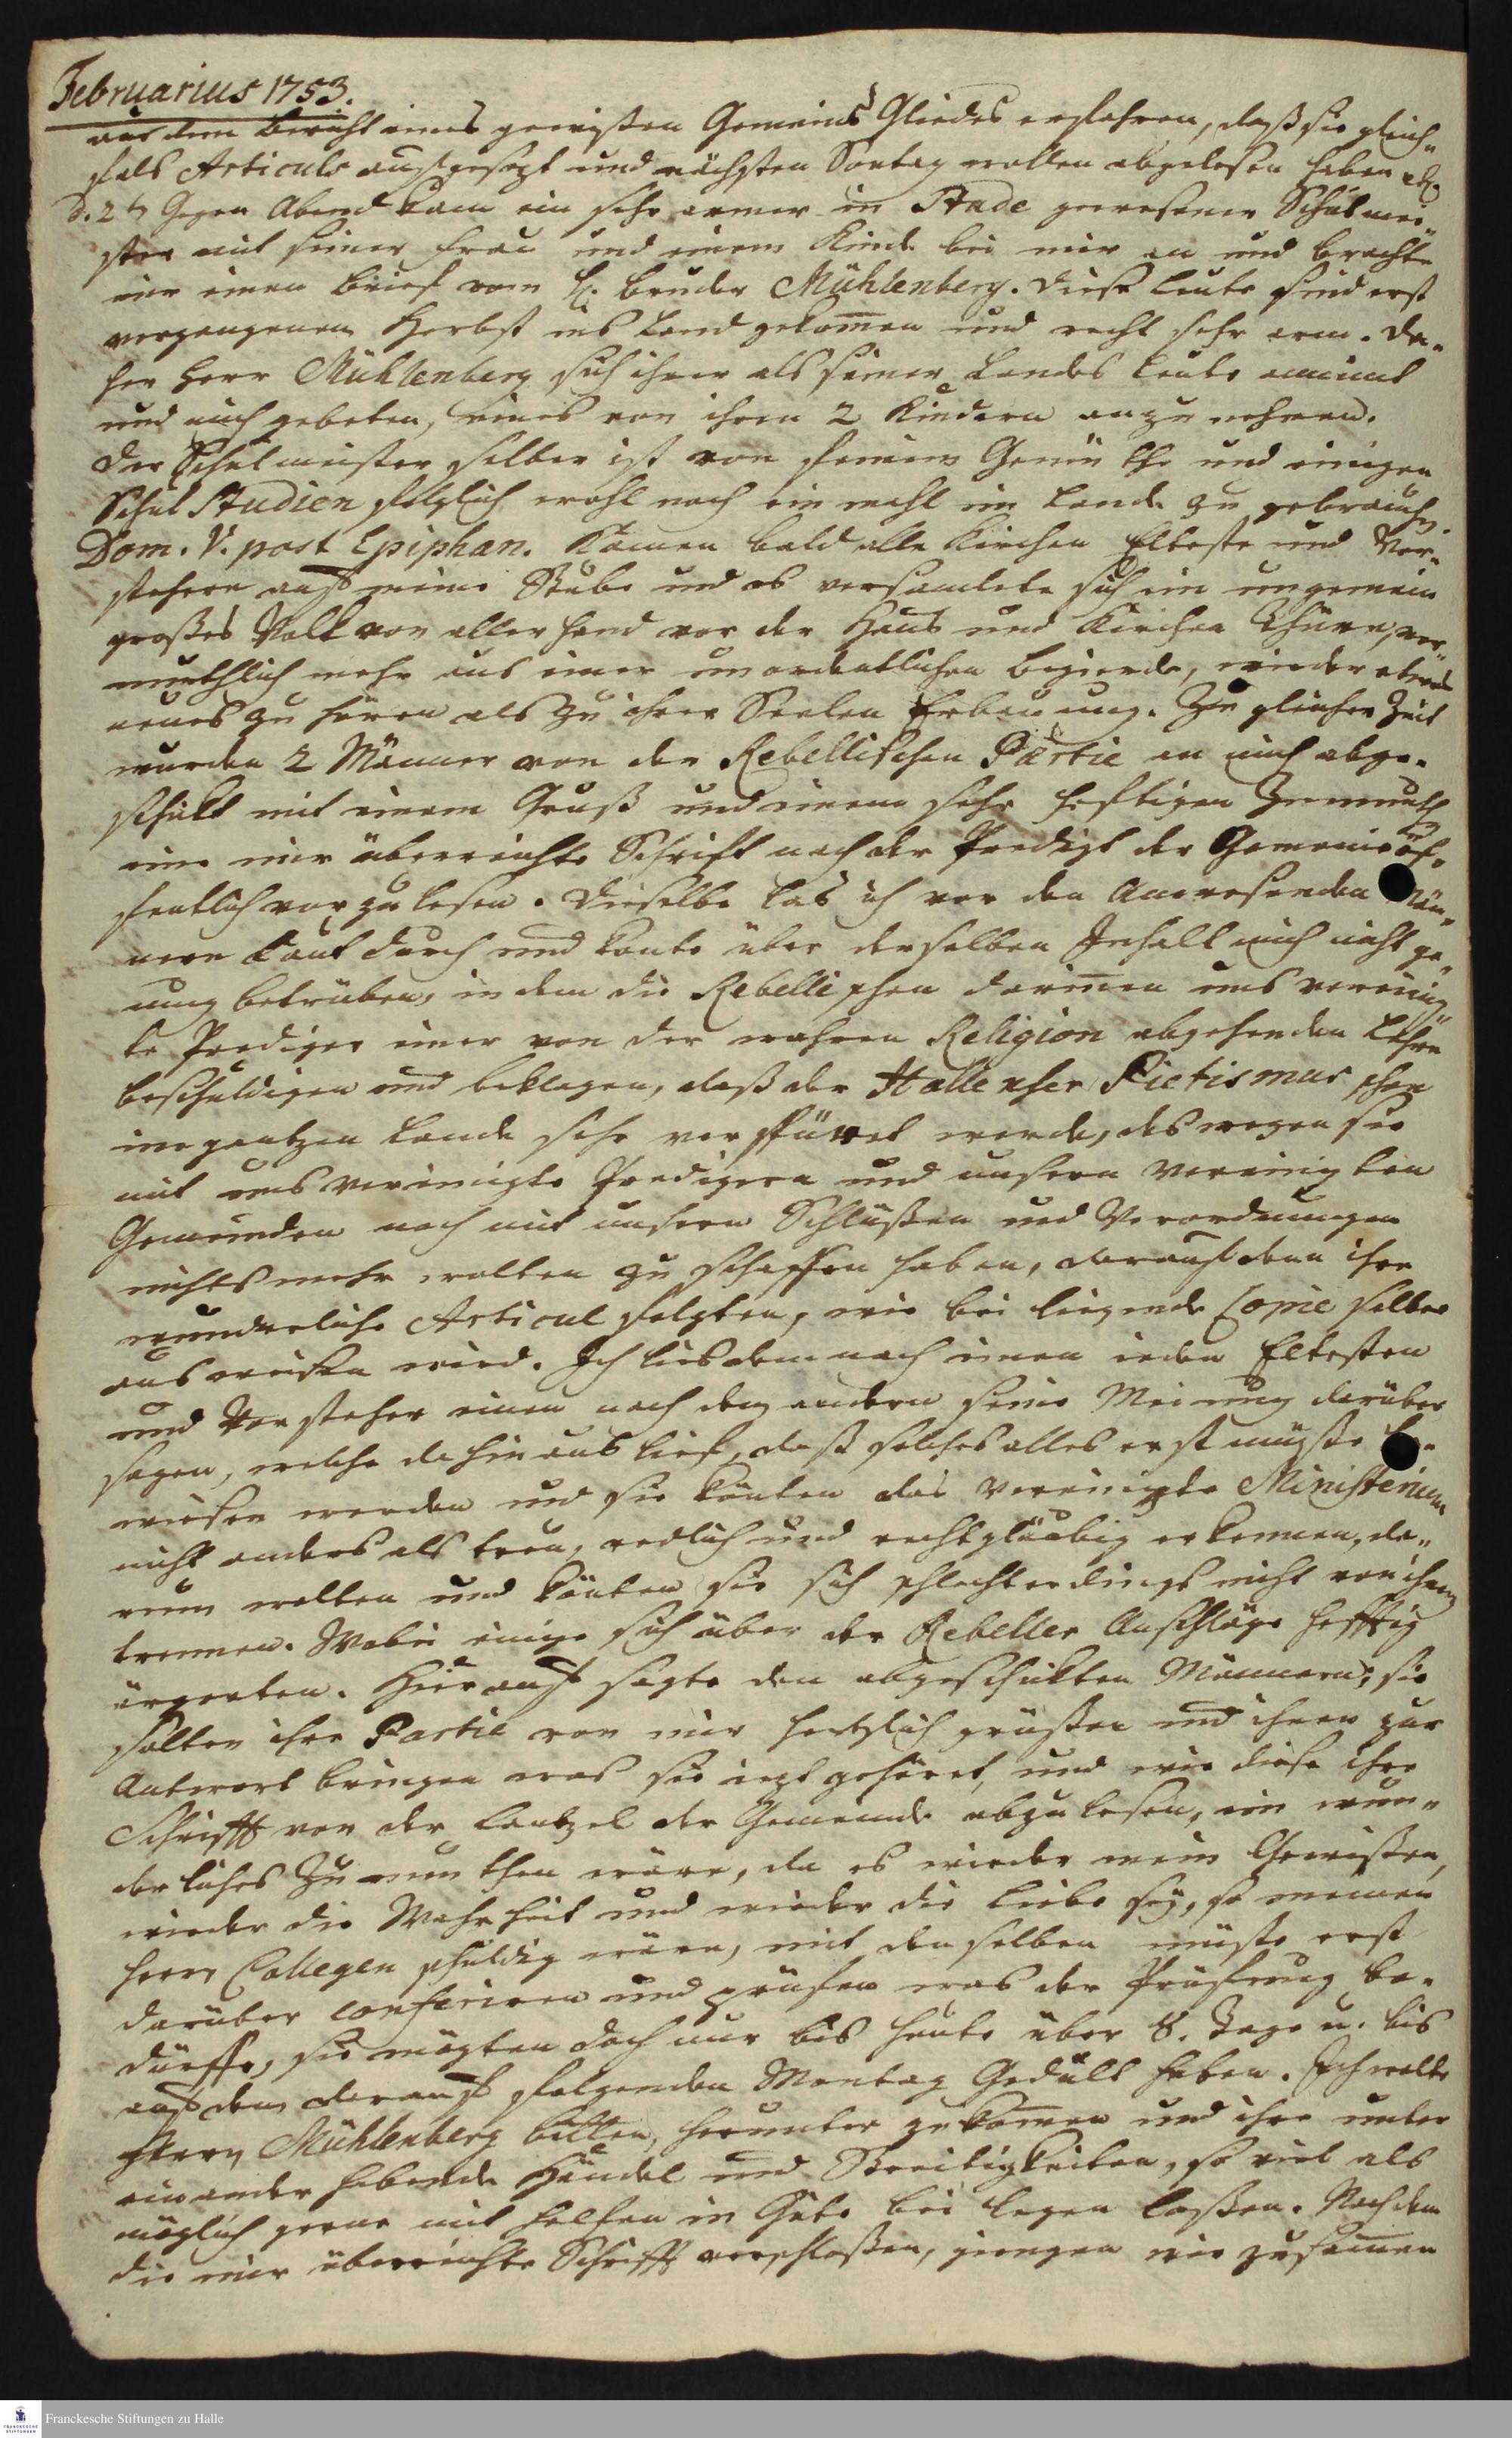 Februarius 1753.
aus dem Bericht eines gewißen Gemeins Gliedes erfahren, daß sie gleich-
fals Articuls aufgesezt und nächsten Sontag wollen abgelesen haben
d. 2 t. Gegen Abend kam ein sehr armer in Stade gewesener Schulmei-
ster mit seiner Frau und einem Kinde bei mir an und brachte
mir einen Brief vom H. Bruder Mühlenberg. Diese Leute sind erst
vergangenen Herbst ins Land gekom̄en und recht sehr arm. Da-
her Herr Mühlenberg sich ihrer als seiner Landes Leute annimt
und mich gebeten, eines von ihren 2 Kindern anzunehmen.
Der Schulmeister selber ist von feinem Gemüthe und einigen
Schul Studien folglich wohl noch ein mahl im Lande zu gebrauchen.
Dom. V. post Epiphan. Kamen bald alle Kirchen Elteste und Vor-
stehern auf meine Stube und es versamlete sich ein ungemein
großes Volk von allerhand vor der Haus und Kirchen Thüre, ver-
muthlich mehr aus einer unordentlichen Begierde, wieder etwas
neues zu hören als zu ihrer Seelen Erbauung. Zu gleicher Zeit
wurden 2 Männer von der Rebellischen Partie an mich abge-
schikt mit einem Gruß und einem sehr heftigen Zumuthen
eine mir überreichte Schrift nach der Predigt der Gemeine öf-
fentlich vorzulesen. Dieselbe las ich vor den Anwesenden Män-
nern laut durch und konte über derselben Inhalt mich nicht ge-
nung betrüben, in dem die Rebellischen darin̄en uns vereinig-
te Prediger einer von der wahren Religion abgehenden Lehre
beschuldigen und beklagen, daß der Hallenser Pietismus schon
im gantzen Lande sehr verspüret werde, deswegen sie
mit uns vereinigte Predigern und unsern vereinigten
Gemeinden noch mit unsern Schlüßen und Verordnungen
nichts mehr wolten zu schaffen haben, darauf dann ihre
wunderliche Articul folgten, wie bei liegende Copie selber
ausweisen wird. Ich lies demnach einen ieden Eltesten
und Vorsteher einen nach dem andern seine Meinung darüber
sagen, welche dahinaus lief, daß solches alles erst müßte be-
wiesen werden und sie könten das vereinigte Ministerium
nicht anders als treu, redlich und rechtgläubig erkennen, da-
rum wolten und könten sie sich schlechterdings nicht von ihnen
trennen. Wobei einige sich über der Rebeller Anschläge hefftig
ärgerten. Hierauf sagte den abgeschikten Männern; sie
solten ihre Partie von mir hertzlich grüßen und ihnen zur
Antwort bringen was sie iezt gehöret, und wie diese ihre
Schrifft von der Cantzel der Gemeinde abzulesen, ein wun-
derliches Zumuthen wäre, da es wieder mein Gewißen,
wieder die Wahrheit und wieder die Liebe sey, so meinen
Herrn Collegen schuldig wäre, mit denselben müste erst
darüber conferiren und prüfen was der Prüfung be-
dürffe, sie mögten doch nur bis heute über 8. Tage u. bis
auf den darauf folgenden Montag Gedult haben. Ich wolte
Herrn Mühlenberg bitten, herunter zu kom̄en und ihre unter
einander habende Händel und Streitigkeiten, so viel als
möglich gerne mit helfen in Güte bei legen laßen. Nachdem
die mir überreichte Schrifft verschloßen, giengen wir zusam̄en
Franckesche Stiftungen zu Halle